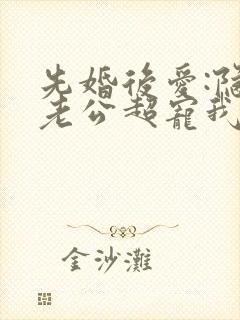 先婚後愛:
老公超寵我
金沙灘